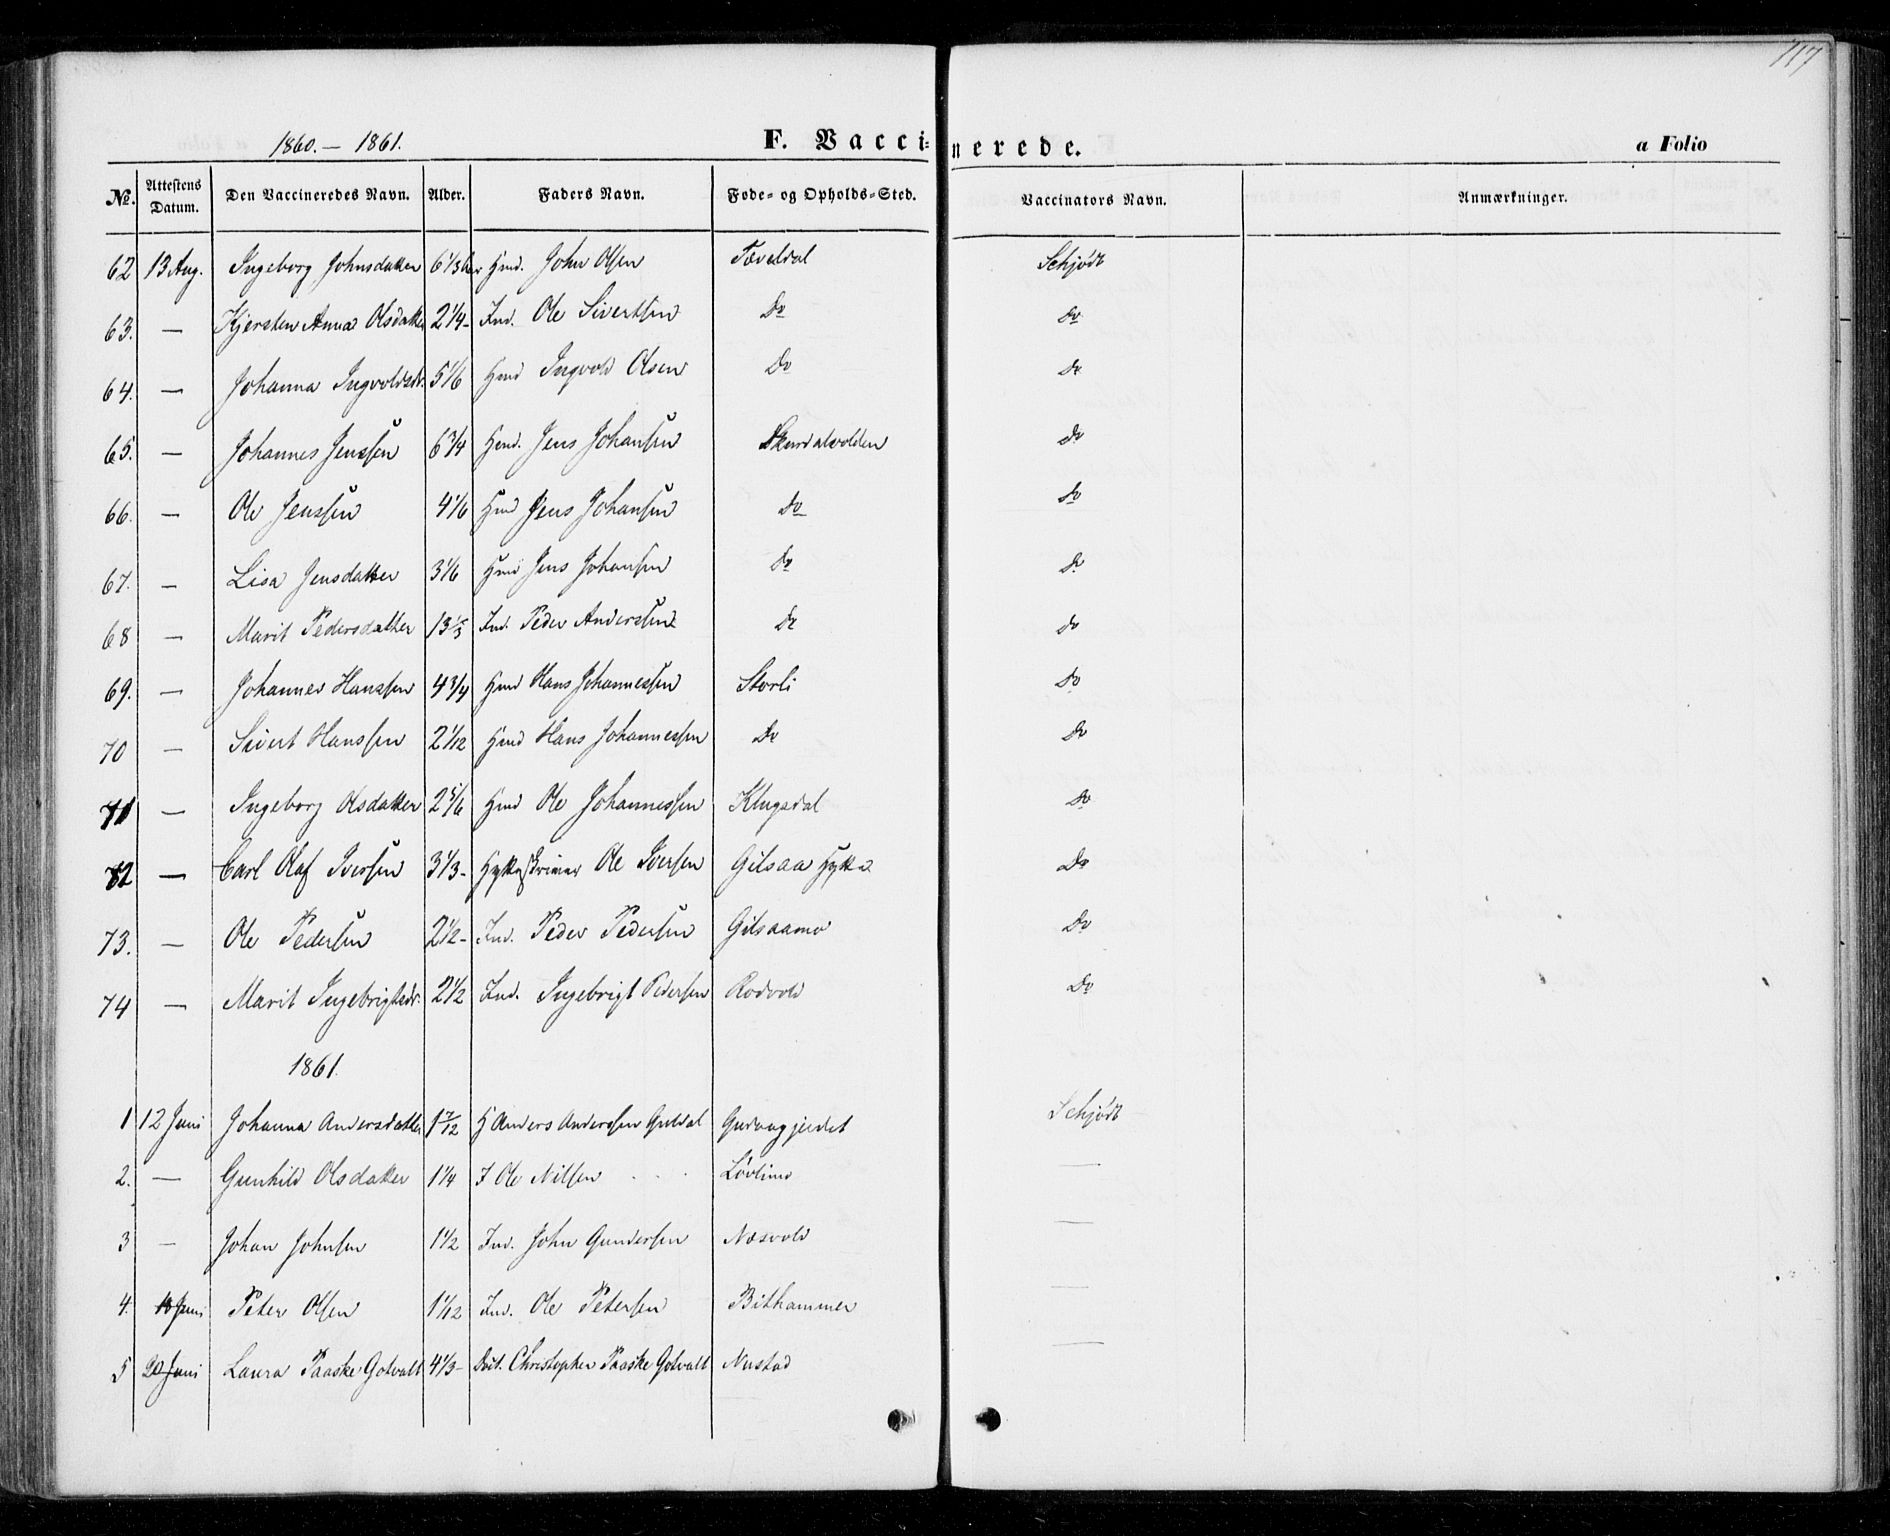 717
1860. – 1861. F. Vaccinerede. a Folio
No. Attestens Datum. Den Vaccineredes Navn. Alder. Faders Navn. Føde- og Opholds-Sted. Vaccinators Navn. Anmærkninger.
62 13 Aug. Ingeborg Johnsdatter 6 1/3 Hmd. John Olsen Tæveldal Schjødt
63. — Kjersten Anna Olsdatter 2 1/4 - Ind. Ole Sivertsen Do Do
64. — Johanna Ingvoldsdr. 5 1/6 Hmd Ingvold Olsen Do Do
65. — Johannes Jenssen 6 3/4 Hmd. Jens Johansen Skurdalvolden Do
66. — Ole Jenssen 4 1/6 Hmd Jens Johansen Do Do
67. — Lisa Jensdatter 3 1/6 Hmd Jens Johansen Do Do
68 — Marit Pedersdatter 13 Ind. Peder Anderssen Do Do
69. — Johannes Hanssen 4 3/4 Hmd Hans Johannessen Storli Do
70 — Sivert Hanssen 2 1/12 Hmd Hans Johannessen Do Do
71 — Ingeborg Olsdatter 2 5/6 Hmd Ole Johannessen Klugsdal Do
72 — Carl Olaf Iversen 3 1/3 - Hytteskriver Ole Iversen Gilsaa Hytte Do
73. — Ole Pedersen 2 1/2 - Ind. Peder Pedersen Gilsaamo Do
74 — Marit Ingebrigtsdr. 2 1/2 Ind. Ingebrigt Pedersen Rodvold Do
1861.
1 12 Juni Johanna Andersdatter 1 7/12 H Anders Anderssen Guldal Schjødt
2. — Gunhild Olsdatter 1 1/4 I Ole Nilsen Løvlimo —
3 — Johan Johnsen 1 1/2 Ind. John Gundersen Næsvold —
4. 18 Juni Peter Olsen 1 1/12 Ind. Ole Petersen Bithammer —
5 20 Juni Laura Paaske Gotvalt 4 1/3 - Christopher Paaske Gotvalt Nustad —